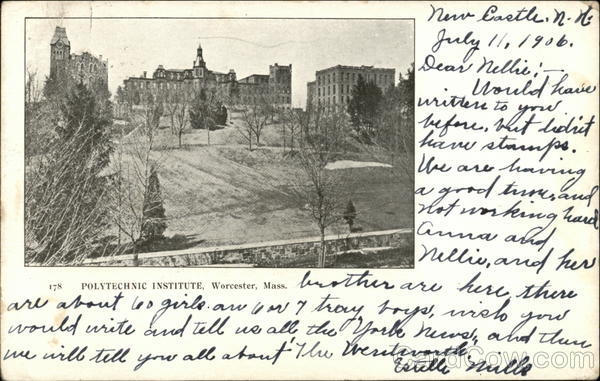 New Castle, N. H.
July 11, 1906.
Dear Nellie!—
Would have
written to you
before, but didn't
have stamps.
We are having
a good time, and
not working hard
Anna and
Nellie, and her
178 POLYTECHNIC INSTITUTE, Worcester, Mass.
brother are here, there
are about 60 girls. an 6 or 7 tray boys, wish you
would write and tell us all the York News, and then
we will tell you all about "The Wentworth"
Estelle Mills
CardCow.com